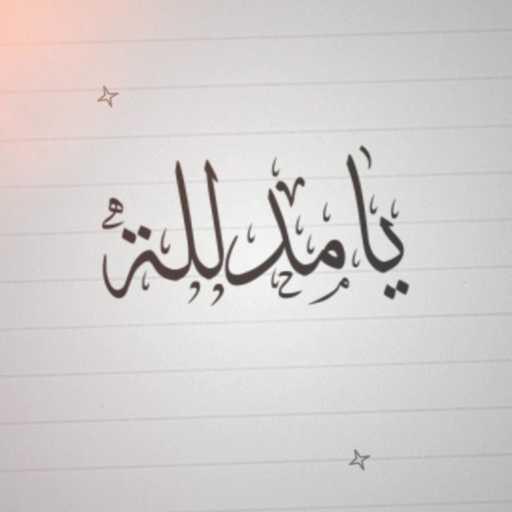 يا مدللة